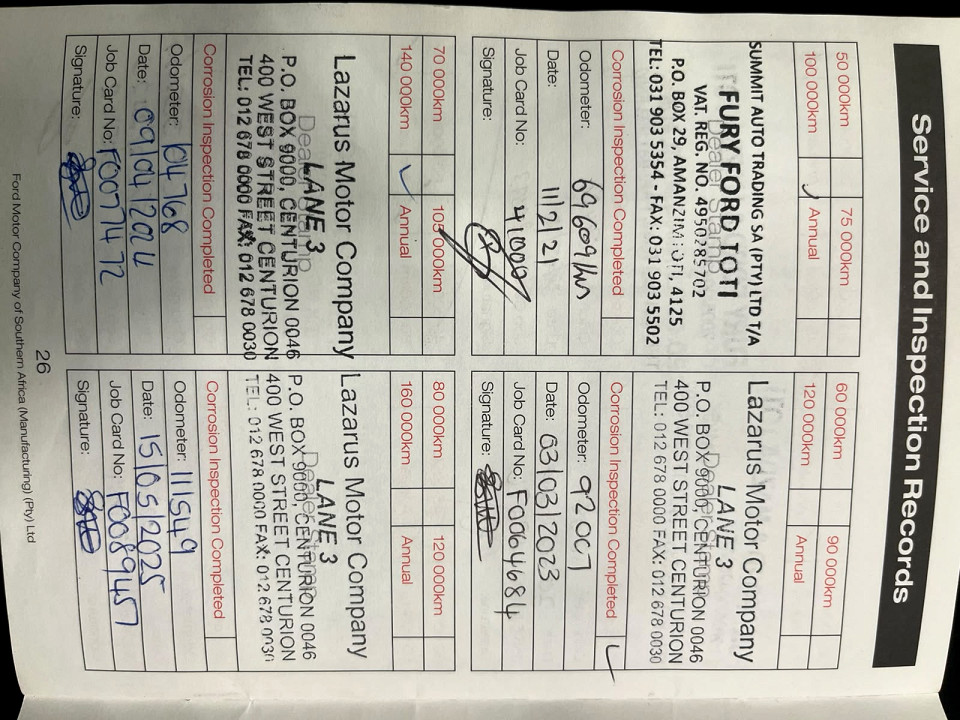 Service and Inspection Records
50 000km 75 000km
100 000km ✓ Annual
Dealer Stamp
SUMMIT AUTO TRADING SA (PTY) LTD T/A
FURY FORD TOTI
VAT. REG. NO. 4950285702
P.O. BOX 29, AMANZIMTOTI, 4125
TEL: 031 903 5354 - FAX: 031 903 5502
Corrosion Inspection Completed
Odometer: 69609km
Date: 11/2/21
Job Card No: 41000
Signature:
60 000km 90 000km
120 000km Annual
Dealer Stamp
Lazarus Motor Company
LANE 3
P.O. BOX 9000, CENTURION 0046
400 WEST STREET CENTURION
TEL: 012 678 0000 FAX: 012 678 0030
Corrosion Inspection Completed ✓
Odometer: 92007
Date: 03/03/2023
Job Card No: F0064684
Signature:
70 000km 105 000km
140 000km ✓ Annual
Dealer Stamp
Lazarus Motor Company
LANE 3
P.O. BOX 9000, CENTURION 0046
400 WEST STREET CENTURION
TEL: 012 678 0000 FAX: 012 678 0030
Corrosion Inspection Completed
Odometer: 104768
Date: 09/04/2024
Job Card No: F0077472
Signature:
80 000km 120 000km
160 000km Annual
Dealer Stamp
Lazarus Motor Company
LANE 3
P.O. BOX 9000, CENTURION 0046
400 WEST STREET CENTURION
TEL: 012 678 0000 FAX: 012 678 0030
Corrosion Inspection Completed
Odometer: 111549
Date: 15/05/2025
Job Card No: F0089457
Signature:
26
Ford Motor Company of Southern Africa (Manufacturing) (Pty) Ltd